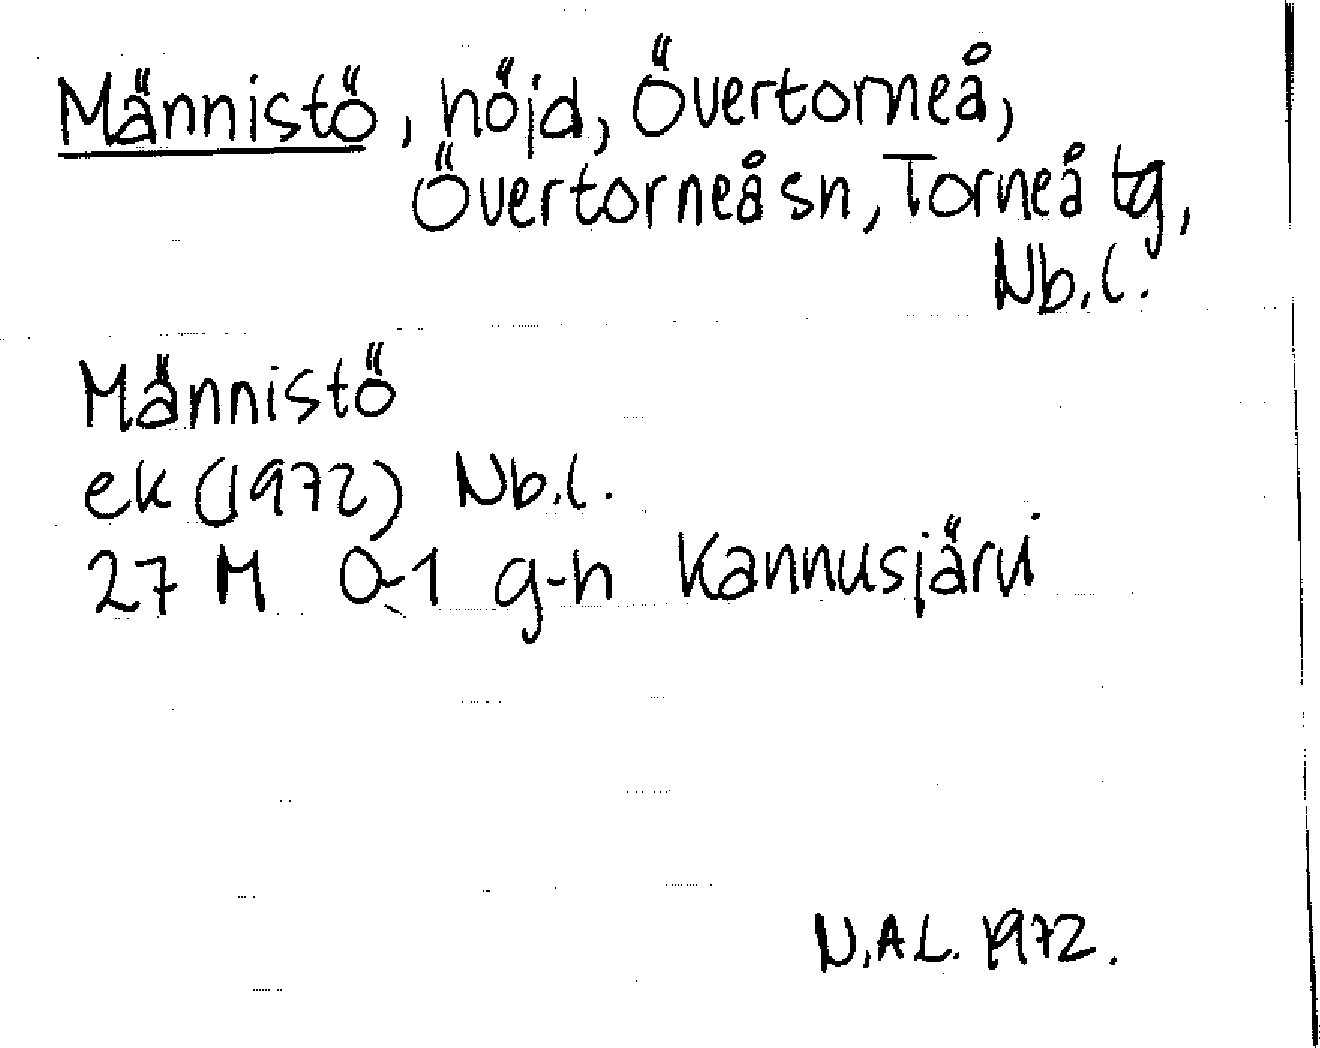 Männistö, höjd, Övertorneå,
Övertorneå sn, Torneå tg,
Nb.l.
Männistö
ek (1972) Nb.l.
27 M 0-1 g-h Kannusjärvi
N.A.L. 1972.